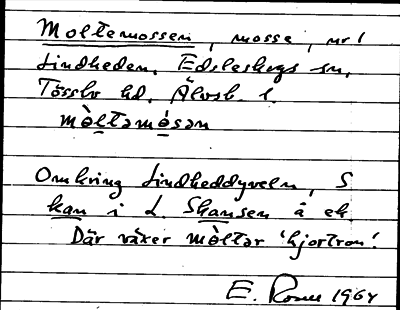 Moltemossen, mosse, nr 1
Lindheden. Edsleskogs sn,
Tössbo hd. Älvsb. l.
mòltəmósən
Omkring Lindheddyveln, S
kan i L. Skansen å ek.
Där växer mòltər 'hjortron'.
E. 1964